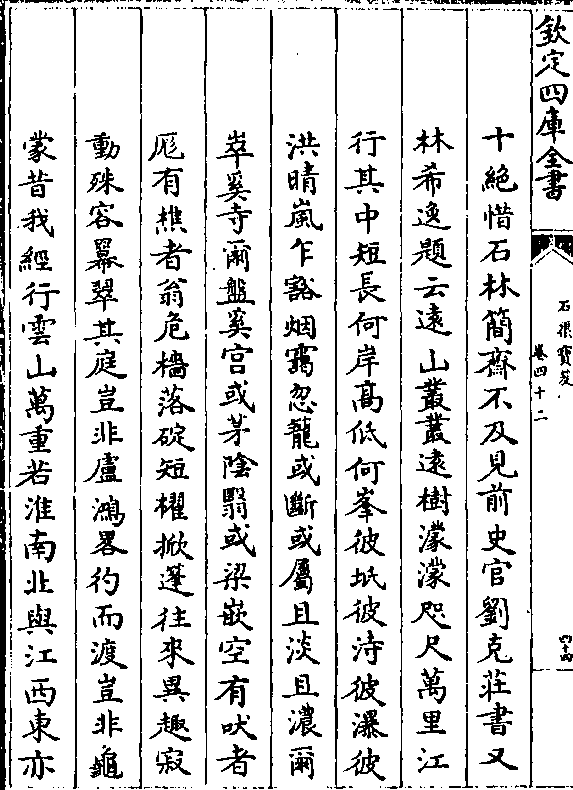 欽定四庫全書
石渠寶笈
卷四十二
十絕惜石林簡齋不及見前史官劉克莊書又
林希逸題云遠山叢叢遠樹濛濛咫尺萬里江
行其中短長何岸高低何峯彼坻彼洔彼瀑彼
洪晴嵐乍豁烟靄忽籠或斷或屬且淡且濃爾
崒奚寺爾盤奚宫或茅陰翳或梁嵌空有吠者
厖有樵者翁危檣落碇短櫂掀蓬往來異趣寂
動殊容羃翠其庭豈非盧鴻畧彴而渡豈非龜
蒙昔我經行雲山萬重若淮南北與江西東亦